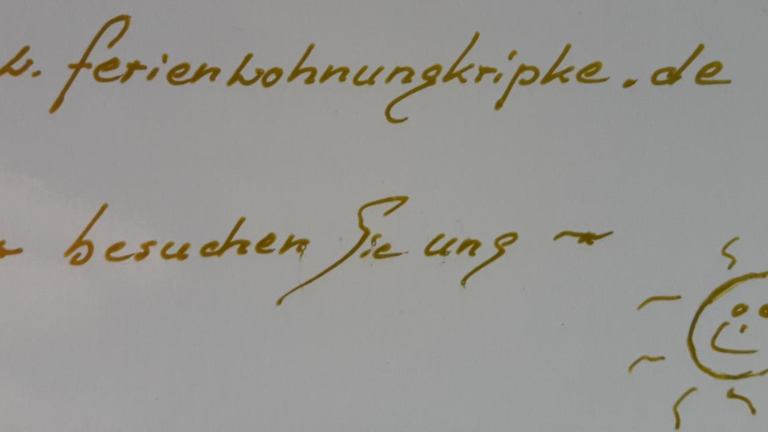 w. ferienwohnungkripke.de
~ besuchen Sie uns ~